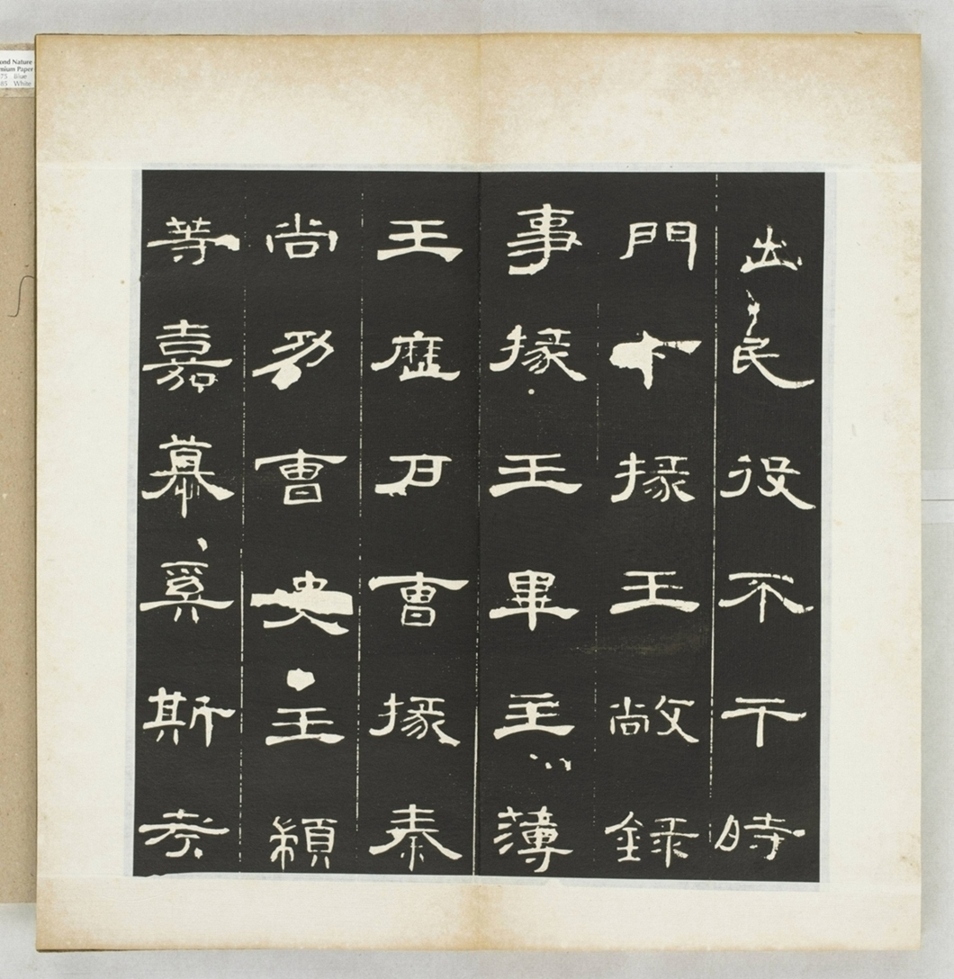 出民役不干時
門下掾王敞錄
事掾王畢主薄
王歷戶曹掾秦
尚功曹史王顓
等嘉慕奚斯考
Nature
Paper
Blue
White